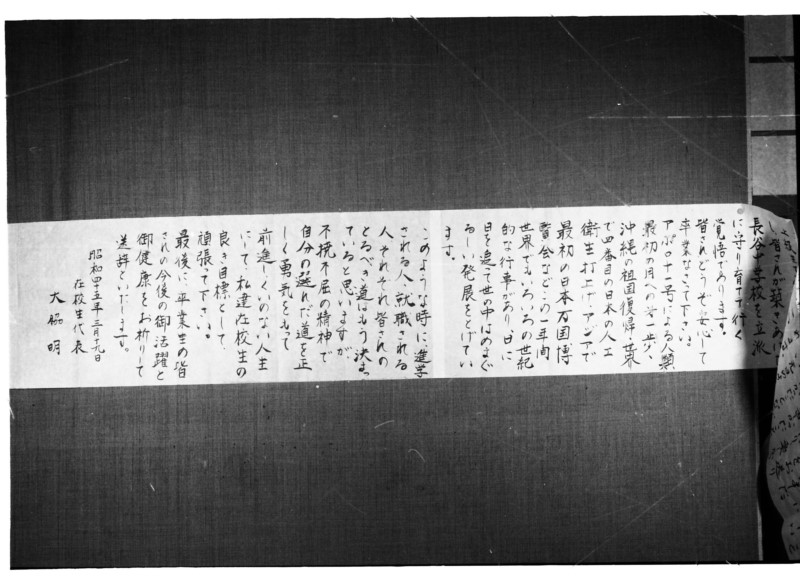 長谷中学校を立派
に守り育てて行く
覚悟であります。
皆さんどうぞ安心して
卒業なさって下さい。
アポロ十一号による人類
最初の月への第一歩、
沖縄の祖国復帰、世界
で四番目の日本の人工
衛生打上げ、アジアで
最初の日本万国博
覧会などこの一年間
世界でもいろいろの世紀
的な行事があり、日に
日を追って世の中はめまぐ
るしい発展をとげてい
ます。
このような時に進学
される人、就職される
人それぞれ皆さんの
とるべき道はもう決まっ
ていると思いますが、
不撓不屈の精神で
自分の選んだ道を正
しく勇気をもって
前進しくいのない人生
にして、私達在校生の
良き目標として、
頑張って下さい。
最後に卒業生の皆
さんの今後の御活躍と
御健康をお祈りして
送辞といたします。
昭和四十五年三月十九日
在校生代表
大脇 明